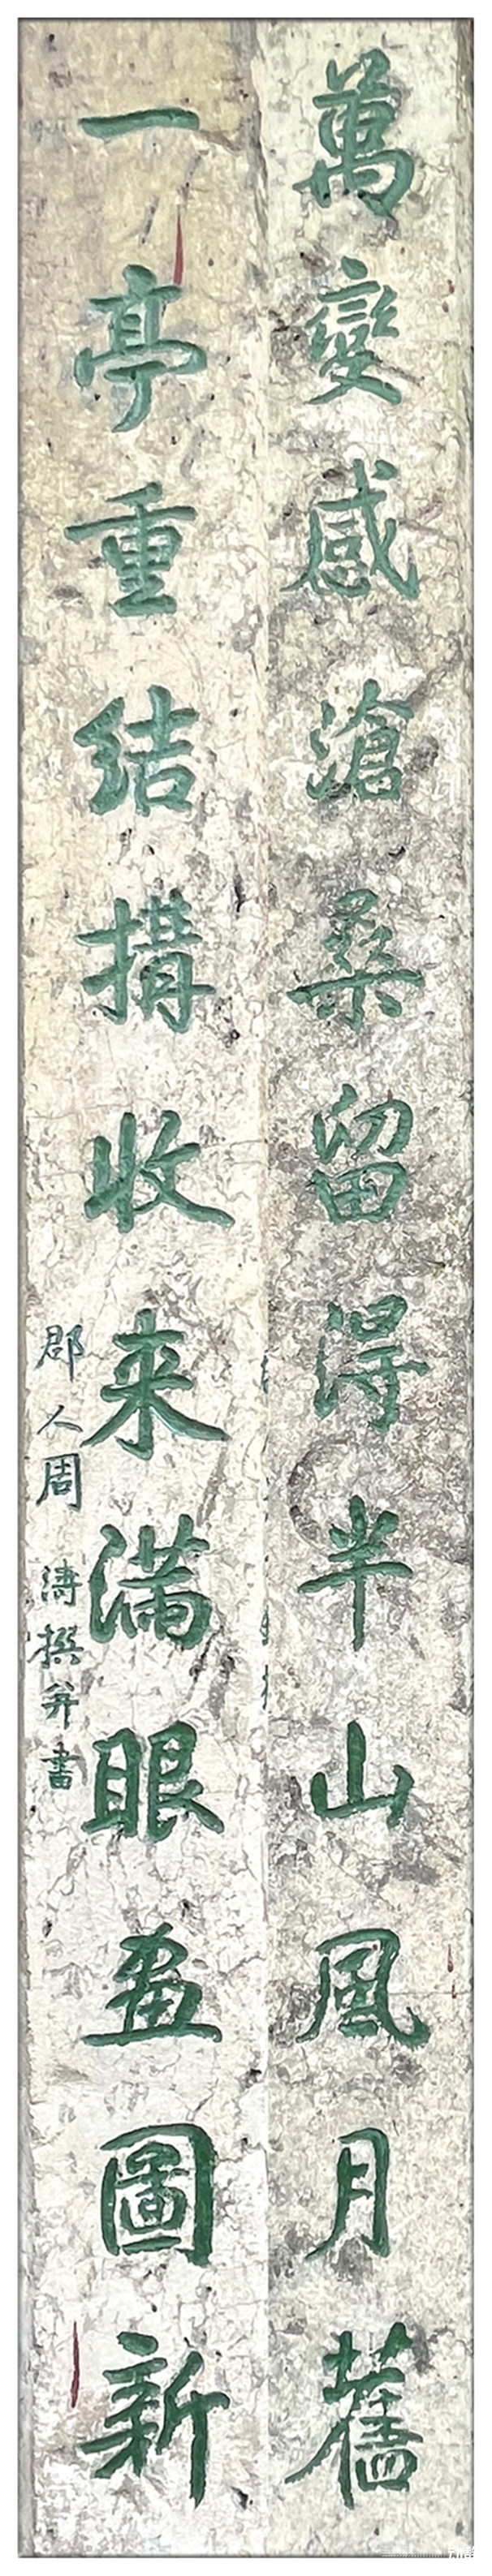 萬變感滄桑留得半山風月舊
一亭重結搆收来滿眼畫圖新
郡人周濤撰并書